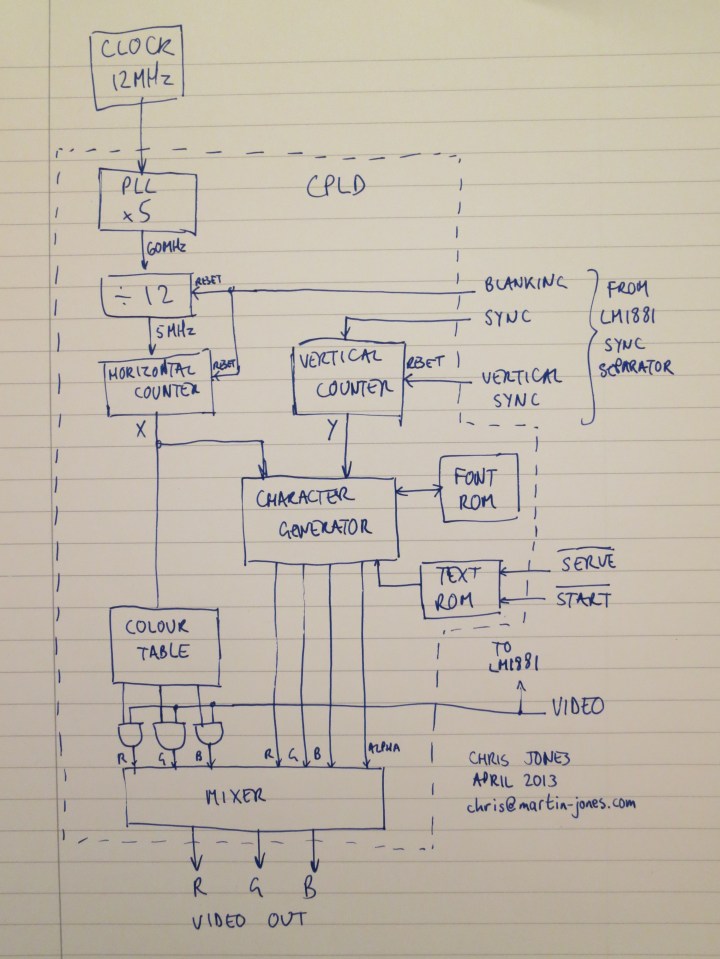 CLOCK
12MHz
CPLD
PLL
x5
60MHz
÷12
RESET
5MHz
BLANKING
SYNC
VERTICAL
SYNC
FROM
LM1881
SYNC
SEPARATOR
HORIZONTAL
COUNTER
RESET
VERTICAL
COUNTER
RESET
X
Y
CHARACTER
GENERATOR
FONT
ROM
TEXT
ROM
SERVE
START
COLOUR
TABLE
TO
LM1881
VIDEO
R G B
R G B ALPHA
MIXER
CHRIS JONES
APRIL 2013
chris@martin-jones.com
R G B
VIDEO OUT